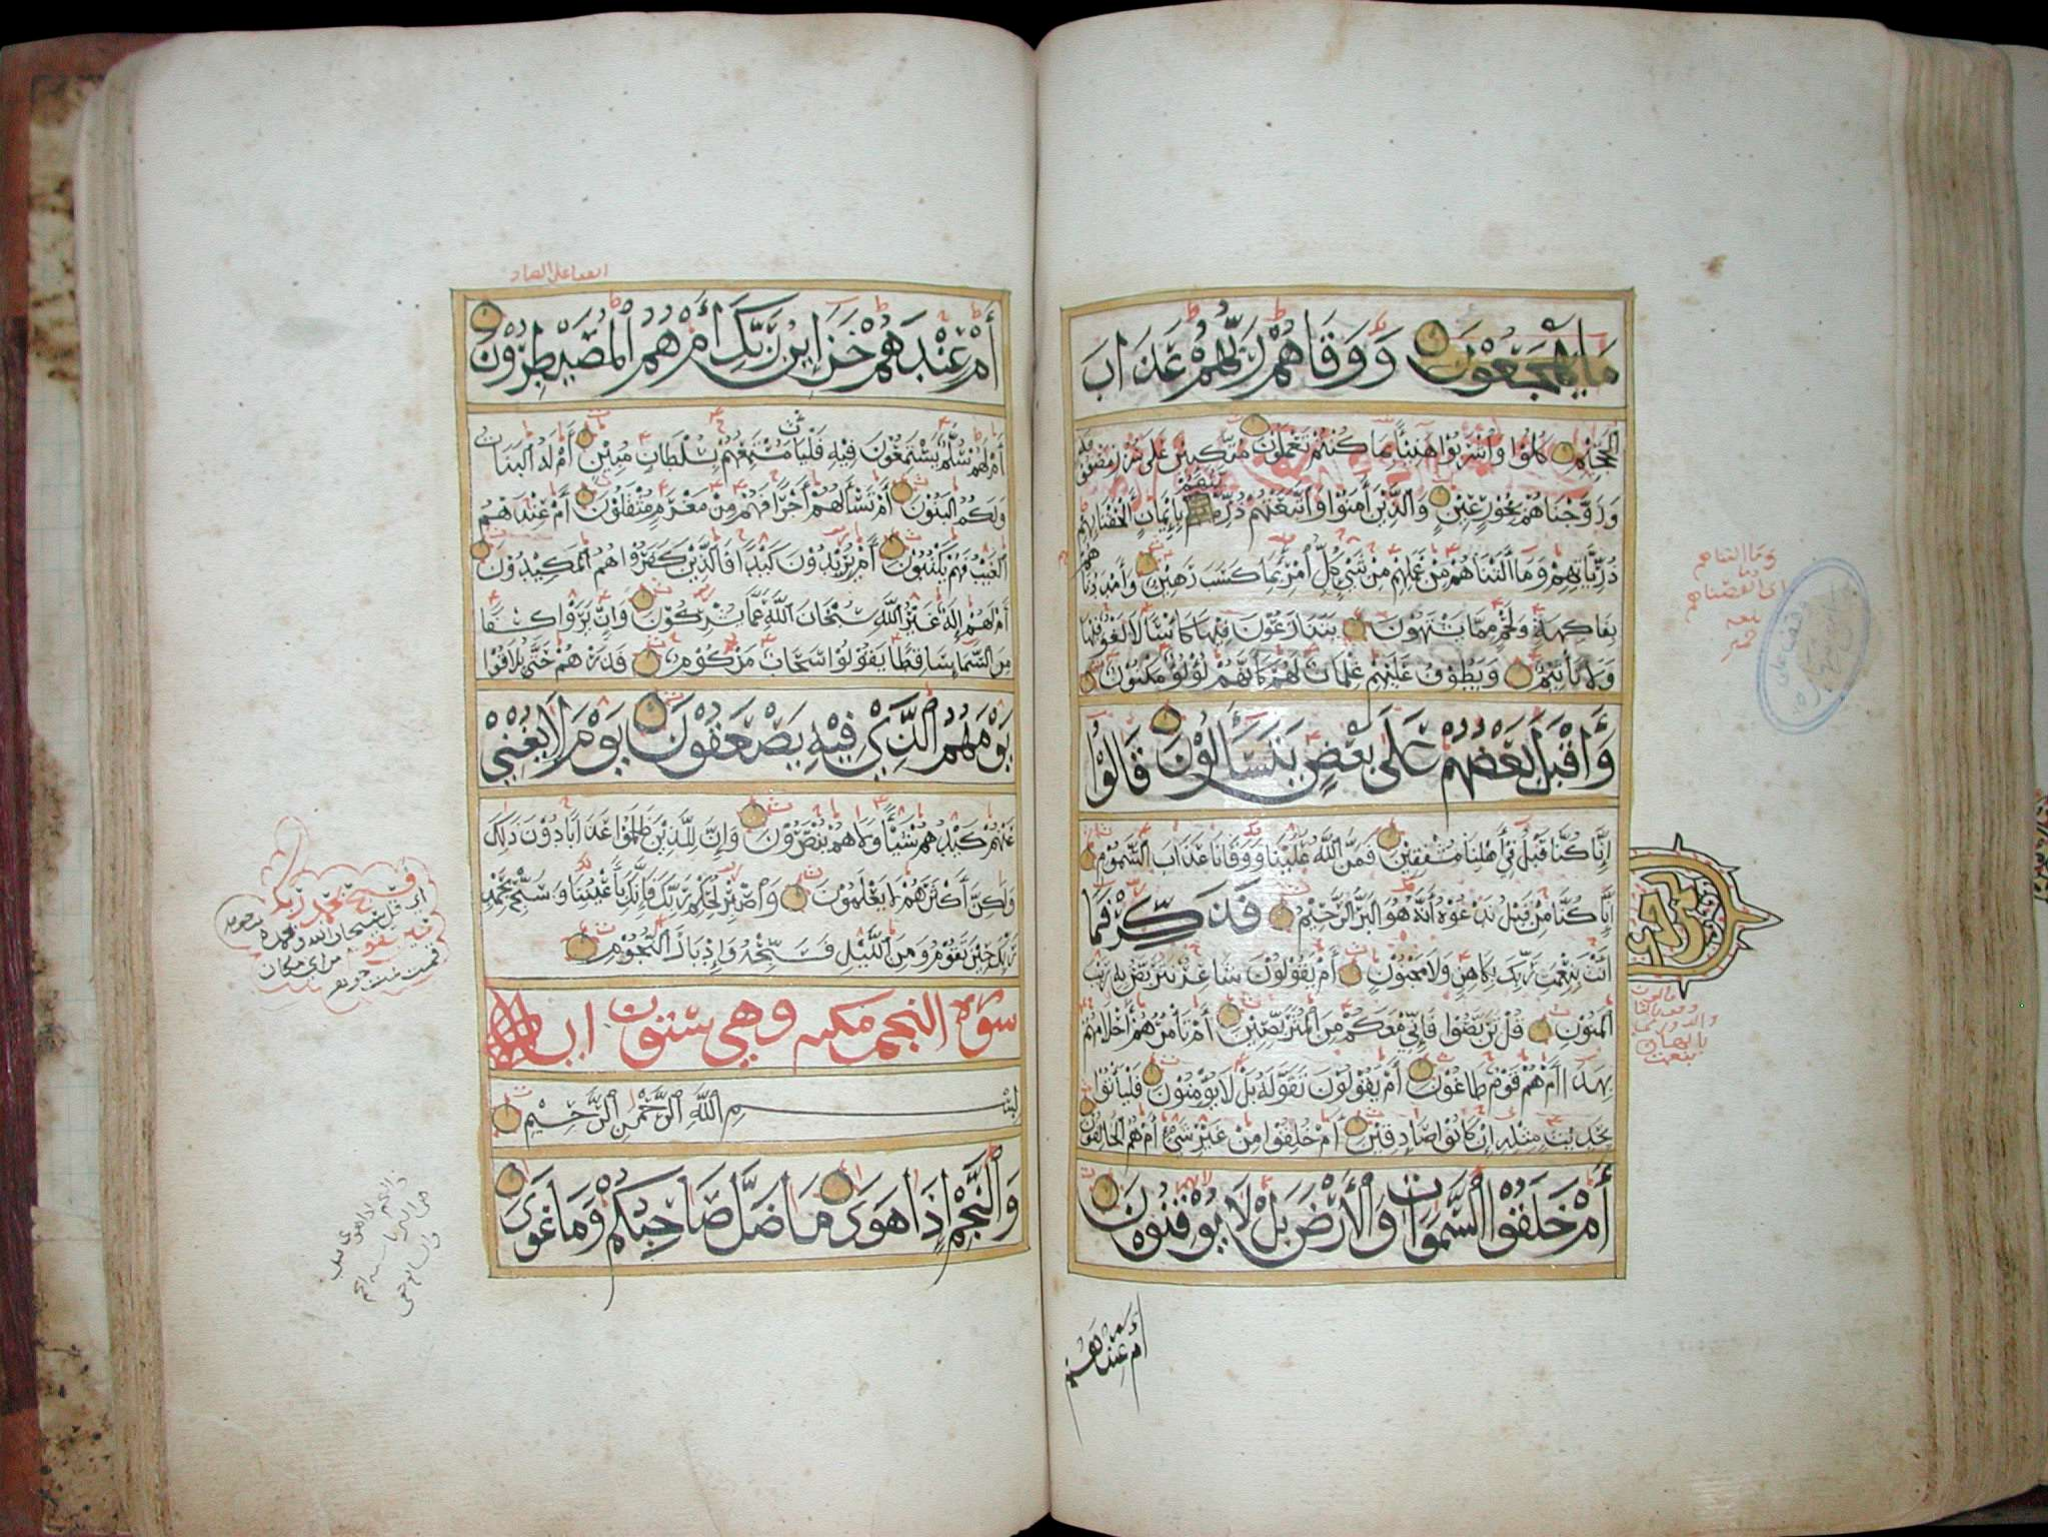 وَوَقَاهُمْ رَبُّهُمْ عَذَابَ
الجَحِيْمِ كُلُوْا وَاشْرَبُوْا هَنِيْئًا بِمَا كُنْتُمْ تَعْمَلُوْنَ مُتَّكِئِيْنَ عَلَى سُرُرٍ مَصْفُوْفَةٍ
وَزَوَّجْنَاهُمْ بِحُوْرٍ عِيْنٍ وَالَّذِيْنَ آمَنُوْا وَاتَّبَعَتْهُمْ ذُرِّيَّتُهُمْ بِإِيْمَانٍ أَلْحَقْنَا بِهِمْ
ذُرِّيَّاتِهِمْ وَمَا أَلَتْنَاهُمْ مِنْ عَمَلِهِمْ مِنْ شَيْءٍ كُلُّ امْرِئٍ بِمَا كَسَبَ رَهِيْنٌ وَأَمْدَدْنَاهُمْ
بِفَاكِهَةٍ وَلَحْمٍ مِمَّا يَشْتَهُوْنَ يَتَنَازَعُوْنَ فِيْهَا كَأْسًا لَا لَغْوٌ فِيْهَا
وَلَا تَأْثِيْمٌ وَيَطُوْفُ عَلَيْهِمْ غِلْمَانٌ لَهُمْ كَأَنَّهُمْ لُؤْلُؤٌ مَكْنُوْنٌ
وَأَقْبَلَ بَعْضُهُمْ عَلَى بَعْضٍ يَتَسَاءَلُوْنَ قَالُوْا
إِنَّا كُنَّا قَبْلُ فِي أَهْلِنَا مُشْفِقِيْنَ فَمَنَّ اللَّهُ عَلَيْنَا وَوَقَانَا عَذَابَ السَّمُوْمِ
إِنَّا كُنَّا مِنْ قَبْلُ نَدْعُوْهُ أَنَّهُ هُوَ البَرُّ الرَّحِيْمُ فَذَكِّرْ فَمَا
أَنْتَ بِنِعْمَتِ رَبِّكَ بِكَاهِنٍ وَلَا مَجْنُوْنٍ أَمْ يَقُوْلُوْنَ شَاعِرٌ نَتَرَبَّصُ بِهِ رَيْبَ
المَنُوْنِ قُلْ تَرَبَّصُوْا فَإِنِّي مَعَكُمْ مِنَ المُتَرَبِّصِيْنَ أَمْ تَأْمُرُهُمْ أَحْلَامُهُمْ
بِهَذَا أَمْ هُمْ قَوْمٌ طَاغُوْنَ أَمْ يَقُوْلُوْنَ تَقَوَّلَهُ بَلْ لَا يُؤْمِنُوْنَ فَلْيَأْتُوْا
بِحَدِيْثٍ مِثْلِهِ إِنْ كَانُوْا صَادِقِيْنَ أَمْ خُلِقُوْا مِنْ غَيْرِ شَيْءٍ أَمْ هُمُ الخَالِقُوْنَ
أَمْ خَلَقُوْا السَّمَوَاتِ وَالأَرْضَ بَلْ لَا يُوْقِنُوْنَ
أم عندهم
وما التناهم
أَمْ عِنْدَهُمْ خَزَائِنُ رَبِّكَ أَمْ هُمُ المُصَيْطِرُوْنَ
أَمْ لَهُمْ سُلَّمٌ يَسْتَمِعُوْنَ فِيْهِ فَلْيَأْتِ مُسْتَمِعُهُمْ بِسُلْطَانٍ مُبِيْنٍ أَمْ لَهُ البَنَاتُ
وَلَكُمُ البَنُوْنَ أَمْ تَسْأَلُهُمْ أَجْرًا فَهُمْ مِنْ مَغْرَمٍ مُثْقَلُوْنَ أَمْ عِنْدَهُمُ
الغَيْبُ فَهُمْ يَكْتُبُوْنَ أَمْ يُرِيْدُوْنَ كَيْدًا فَالَّذِيْنَ كَفَرُوْا هُمُ المَكِيْدُوْنَ
أَمْ لَهُمْ إِلَهٌ غَيْرُ اللَّهِ سُبْحَانَ اللَّهِ عَمَّا يُشْرِكُوْنَ وَإِنْ يَرَوْا كِسْفًا
مِنَ السَّمَاءِ سَاقِطًا يَقُوْلُوْا سَحَابٌ مَرْكُوْمٌ فَذَرْهُمْ حَتَّى يُلَاقُوْا
يَوْمَهُمُ الَّذِيْ فِيْهِ يَصْعَقُوْنَ يَوْمَ لَا يُغْنِيْ
عَنْهُمْ كَيْدُهُمْ شَيْئًا وَلَا هُمْ يُنْصَرُوْنَ وَإِنَّ لِلَّذِيْنَ ظَلَمُوْا عَذَابًا دُوْنَ ذَلِكَ
وَلَكِنَّ أَكْثَرَهُمْ لَا يَعْلَمُوْنَ وَاصْبِرْ لِحُكْمِ رَبِّكَ فَإِنَّكَ بِأَعْيُنِنَا وَسَبِّحْ بِحَمْدِ
رَبِّكَ حِيْنَ تَقُوْمُ وَمِنَ اللَّيْلِ فَسَبِّحْهُ وَإِدْبَارَ النُّجُوْمِ
سورة النجم مكية وهي ستون
بِسْمِ اللَّهِ الرَّحْمَنِ الرَّحِيْمِ
وَالنَّجْمِ إِذَا هَوَى مَا ضَلَّ صَاحِبُكُمْ وَمَا غَوَى
فسبح بحمد ربك
اي قل سبحان الله وبحمده
حين تقوم من اي مكان